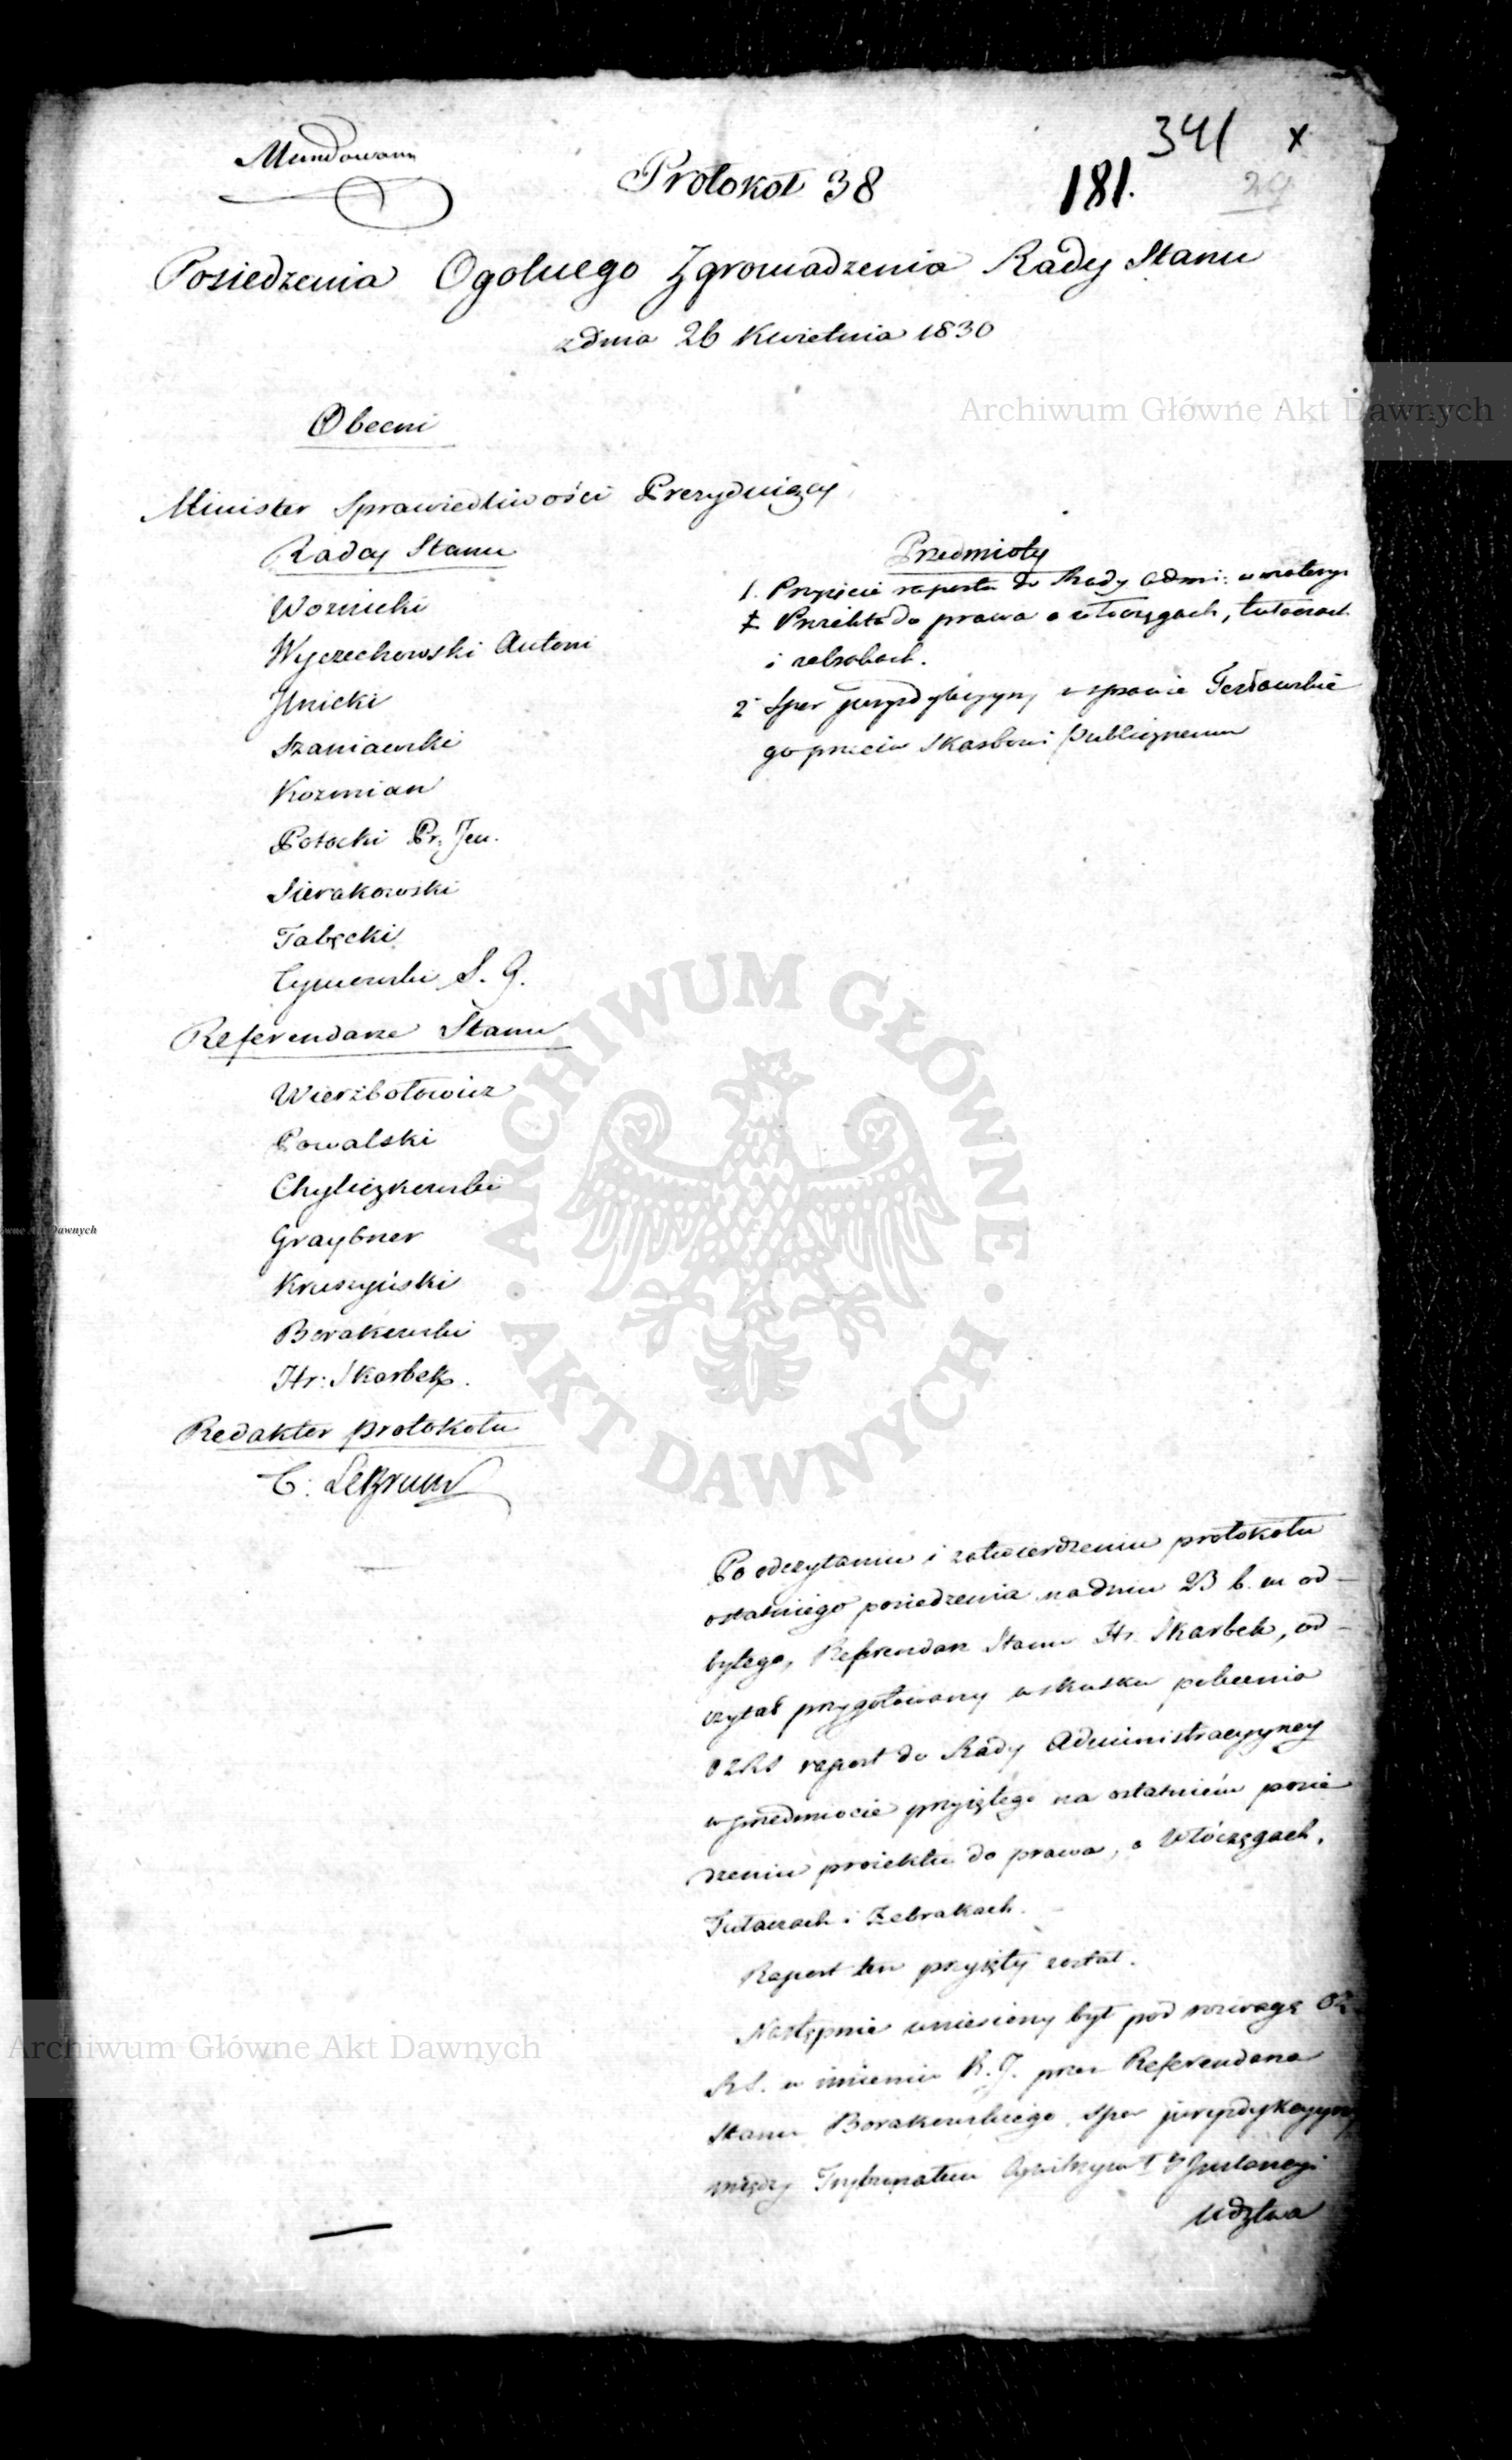 Mundowano
341 x
Protokoł 38
181.
29
Posiedzenia Ogolnego Zgromadzenia Rady Stanu
z dnia 26 Kwietnia 1830
Obecni
Minister Sprawiedliwości Prezyduiący
Radcy Stanu
Woznicki
Wyczechowski Antoni
Jlnicki
Szaniawski
Kozmian
Potocki Pr: Jen.
Sierakowski
Tabęcki
Tymowski S. G.
Referendarze Stanu
Wierzbołowicz
Powalski
Chyliczkowski
Graybner
Kruszyński
Borakowski
Hr: Skarbek.
Redaktor protokołu
C: LeBrun
Przedmioty
1. Przyięcie raportu do Rady Admi: w materyi
Proiektu do prawa o włoczęgach, tułaczach
i żebrakach.
2 Spor jurysdykcyiny w sprawie
go przeciw Skarbowi Publicznemu
Po odczytaniu i zatwierdzeniu protokołu
ostatniego posiedzenia na dniu 23 b. m od-
bytego, Referendarz Stanu Hr. Skarbek, od-
czytał przygotowany w skutku polecenia
OZRS raport do Rady Administracyyney
w przedmiocie przyiętego na ostatniém posie
dzeniu proiektu do prawa, o Włóczęgach,
Tułaczach i Żebrakach.
Raport ten przyięty został.
Następnie wniesiony był pod rozwagę OZ
RS. w imieniu K. J. przez Referendarza
Stanu Borakowskiego, spor jurysdykcyyny
między Trybunałem Cywilnym I
wdztwa
Archiwum Główne Akt Dawnych
ARCHIWUM GŁÓWNE · AKT DAWNYCH ·
wne Akt Dawnych
Archiwum Główne Akt Dawnych